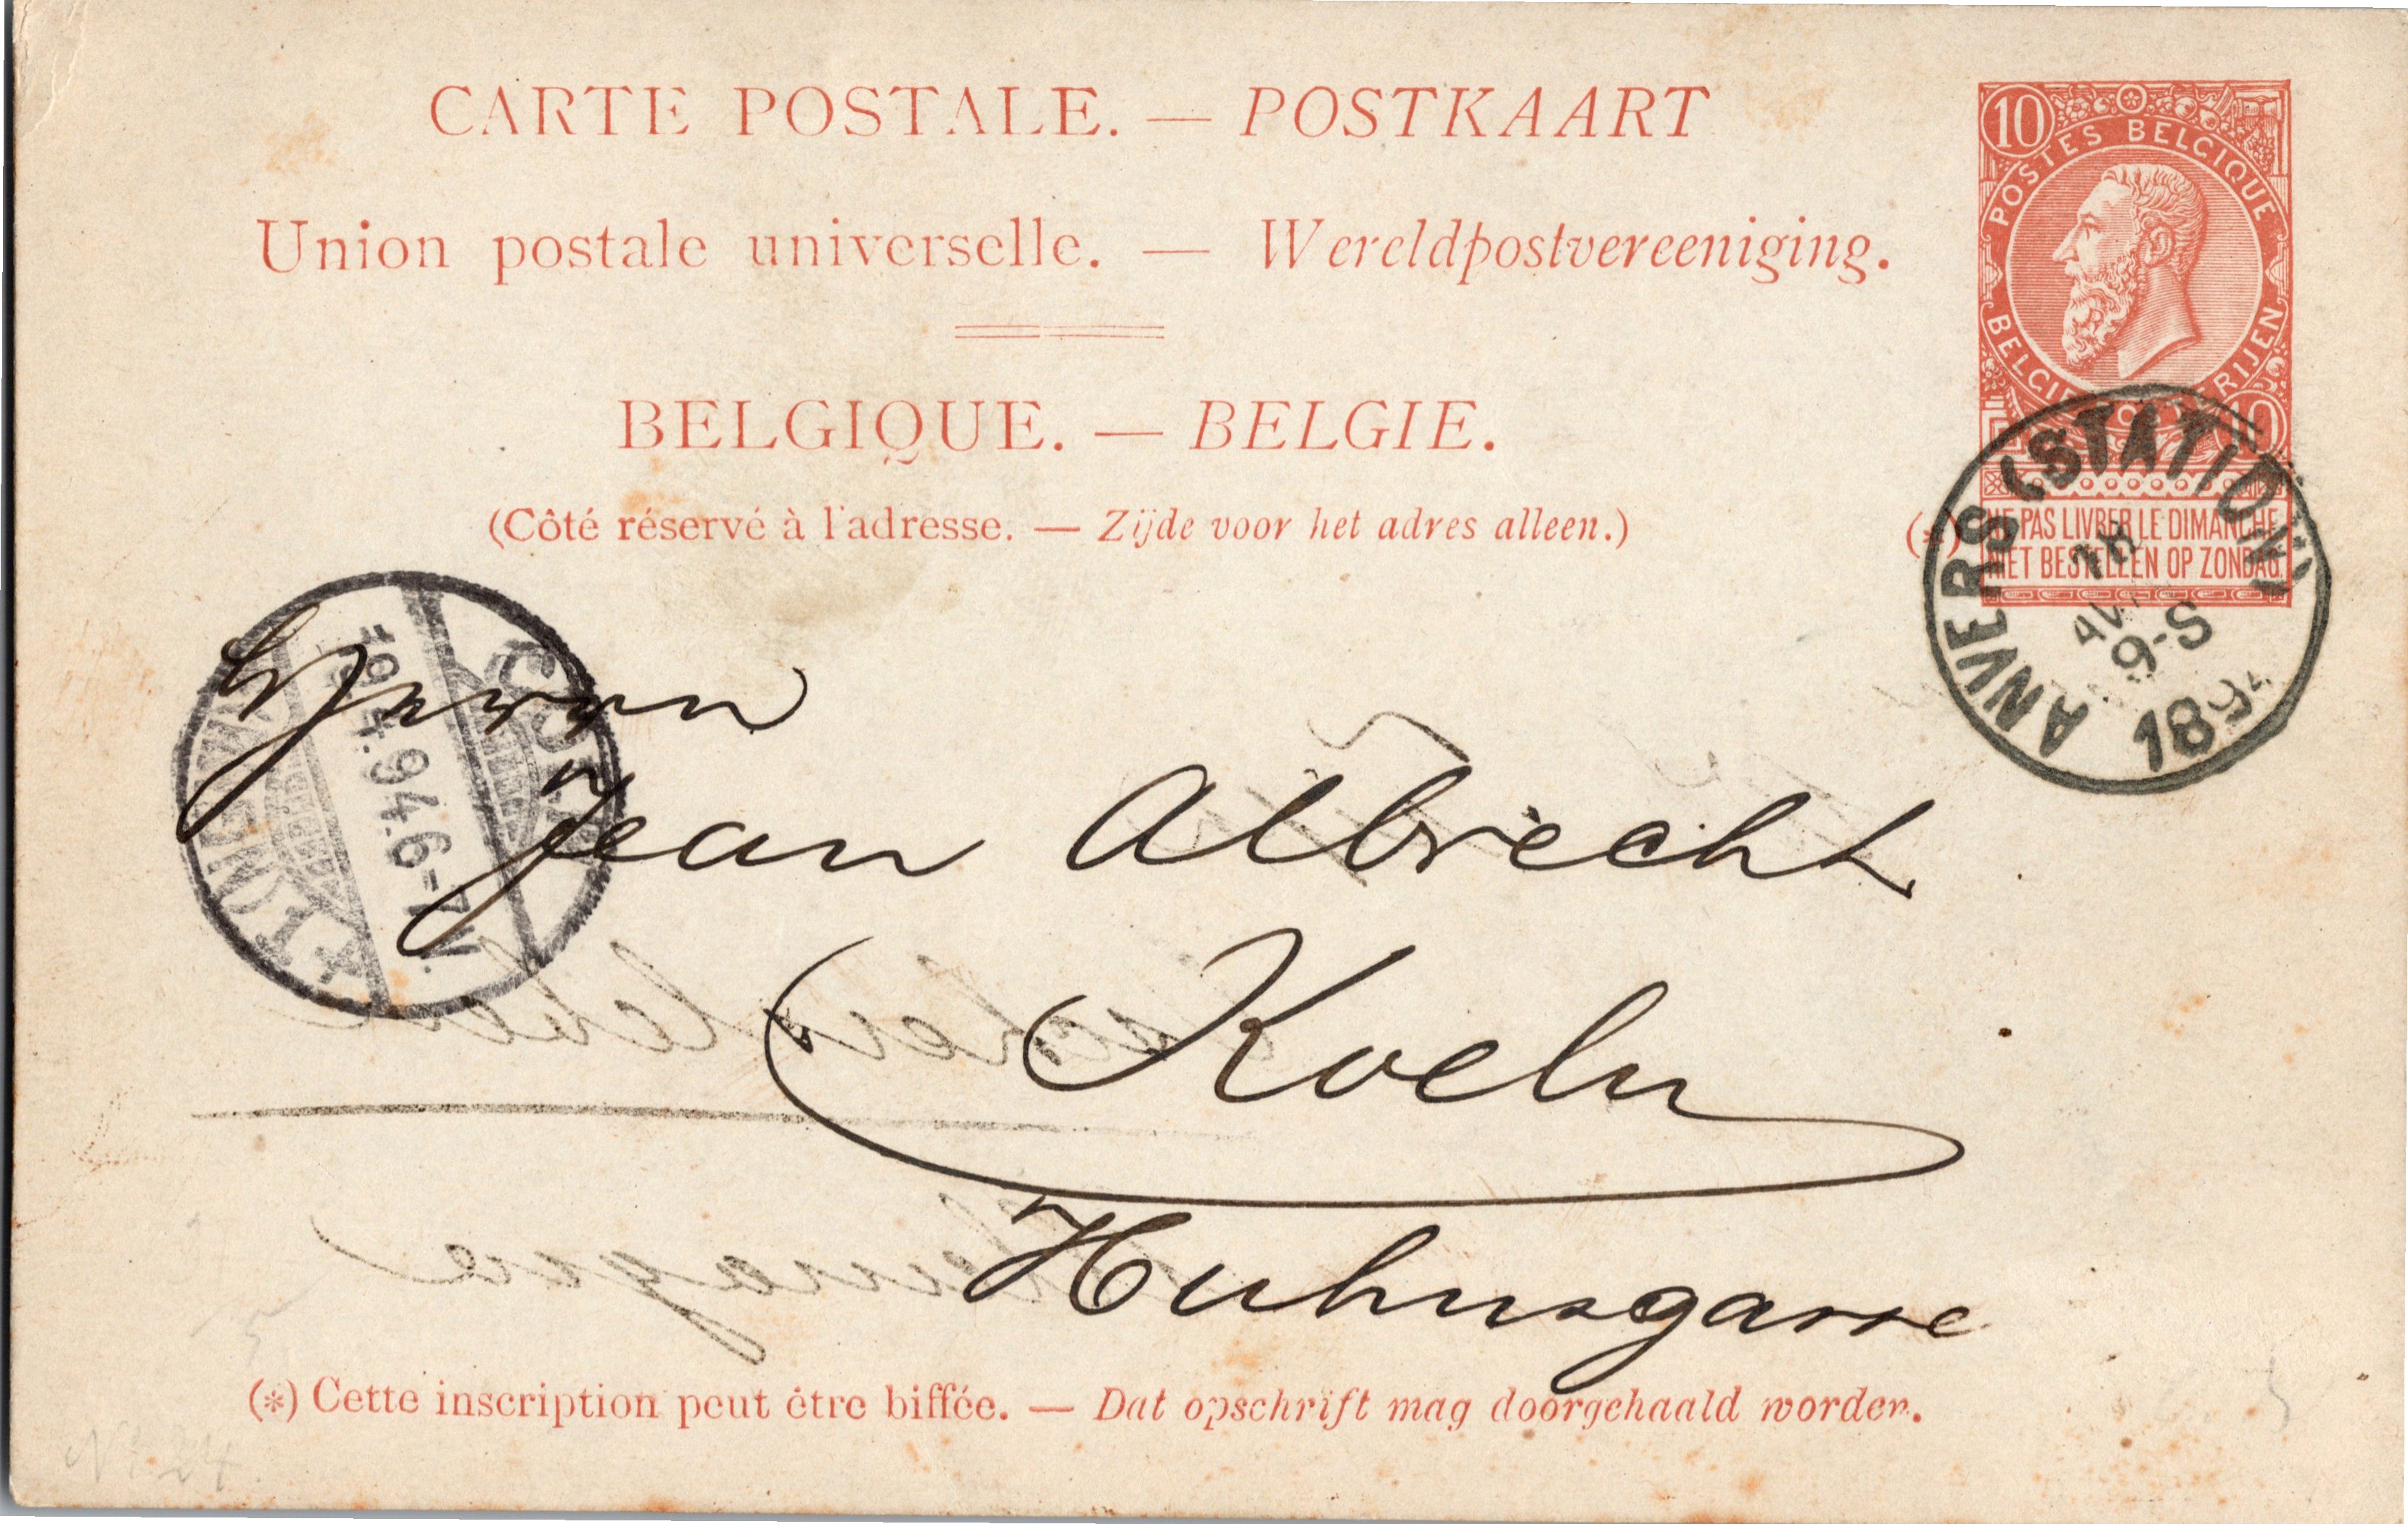 CARTE POSTALE. — POSTKAART
Union postale universelle. — Wereldpostvereeniging.
BELGIQUE. — BELGIE.
(Côté réservé à l'adresse. — Zijde voor het adres alleen.)
10
POSTES BELGIQUE
10
(*) NE PAS LIVRER LE DIMANCHE
NIET BESTELLEN OP ZONDAG.
ANVERS (STATION)
18
9-S
189
19.4.94.6-7 N.
Herrn
Jean Albrecht
Koeln
Huhnsgasse
(*) Cette inscription peut être biffée. — Dat opschrift mag doorgehaald worden.